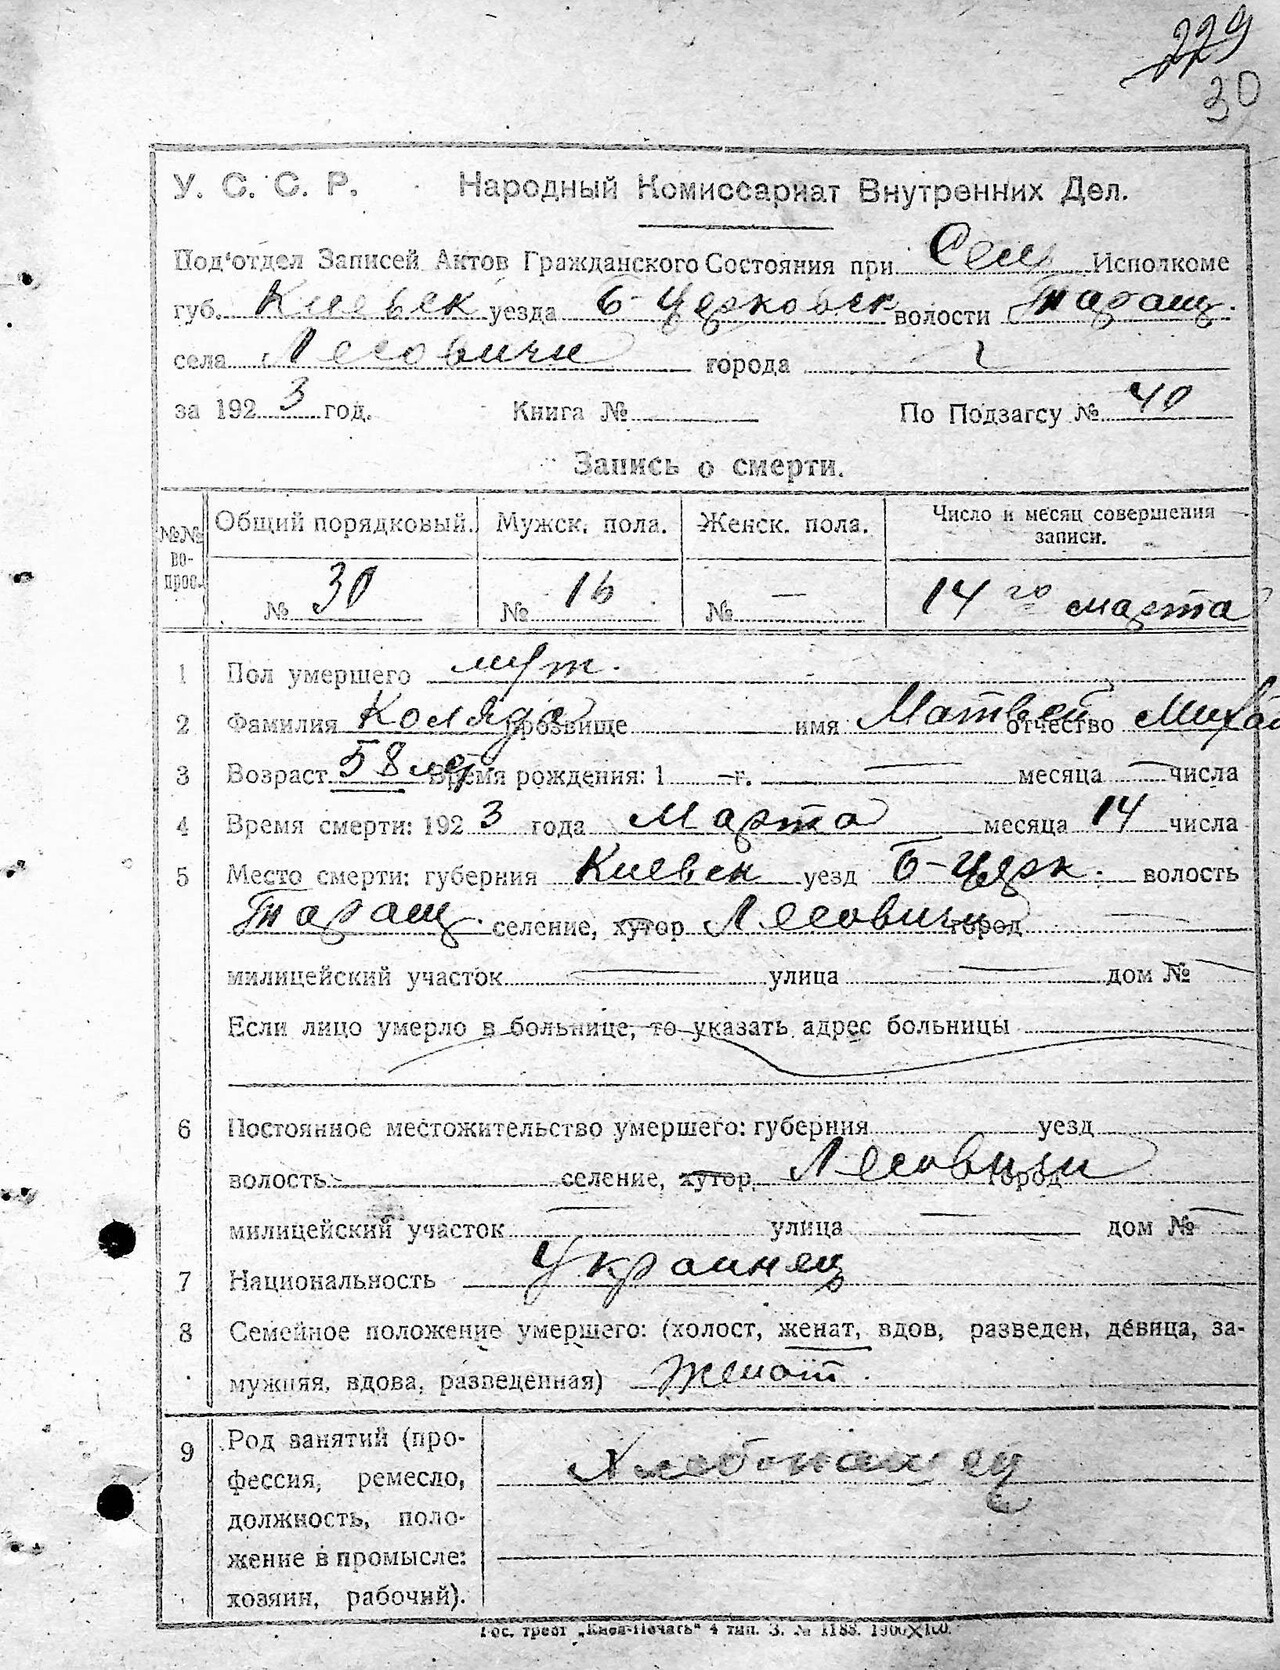 229
30
У. С. С. Р. Народный Комиссариат Внутренних Дел.
Под'отдел Записей Актов Гражданского Состояния при Сел Исполкоме
губ. Киевск уезда Б-Церковск волости Таращ.
села Лесовичи города
за 1923 год. Книга № По Подзагсу № 40
Запись о смерти.
№№ вопрос. Общий порядковый. Мужск. пола. Женск. пола. Число и месяц совершения записи.
№ 30 № 16 № — 14го марта
1 Пол умершего муж.
2 Фамилия Коляда прозвище имя Матвей отчество Михай
3 Возраст 58 лет Время рождения: 1 — г. — месяца — числа
4 Время смерти: 1923 года Марта месяца 14 числа
5 Место смерти: губерния Киевск уезд Б-Церк. волость
Таращ. селение, хутор Лесовичи город —
милицейский участок — улица — дом № —
Если лицо умерло в больнице, то указать адрес больницы
6 Постоянное местожительство умершего: губерния уезд
волость селение, хутор Лесовичи город
милицейский участок — улица — дом № —
7 Национальность Украинец
8 Семейное положение умершего: (холост, женат, вдов, разведен, девица, за-
мужняя, вдова, разведенная) Женат.
9 Род занятий (про- Хлебопашец
фессия, ремесло,
должность, поло-
жение в промысле:
хозяин, рабочий).
Гос. трест „Киев-Печать" 4 тип. З. № 1188. 1900×100.